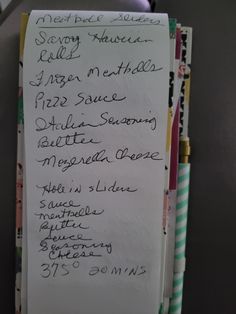 Meatball Sliders
Savory Hawaiian
Rolls
Frozen Meatballs
Pizz Sauce
Italian Seasoning
Butter
Mozerella Cheese
Hole in sliders
Sauce
meatballs
Butter
Sauce
Seasoning
Cheese
375° 20 MINS